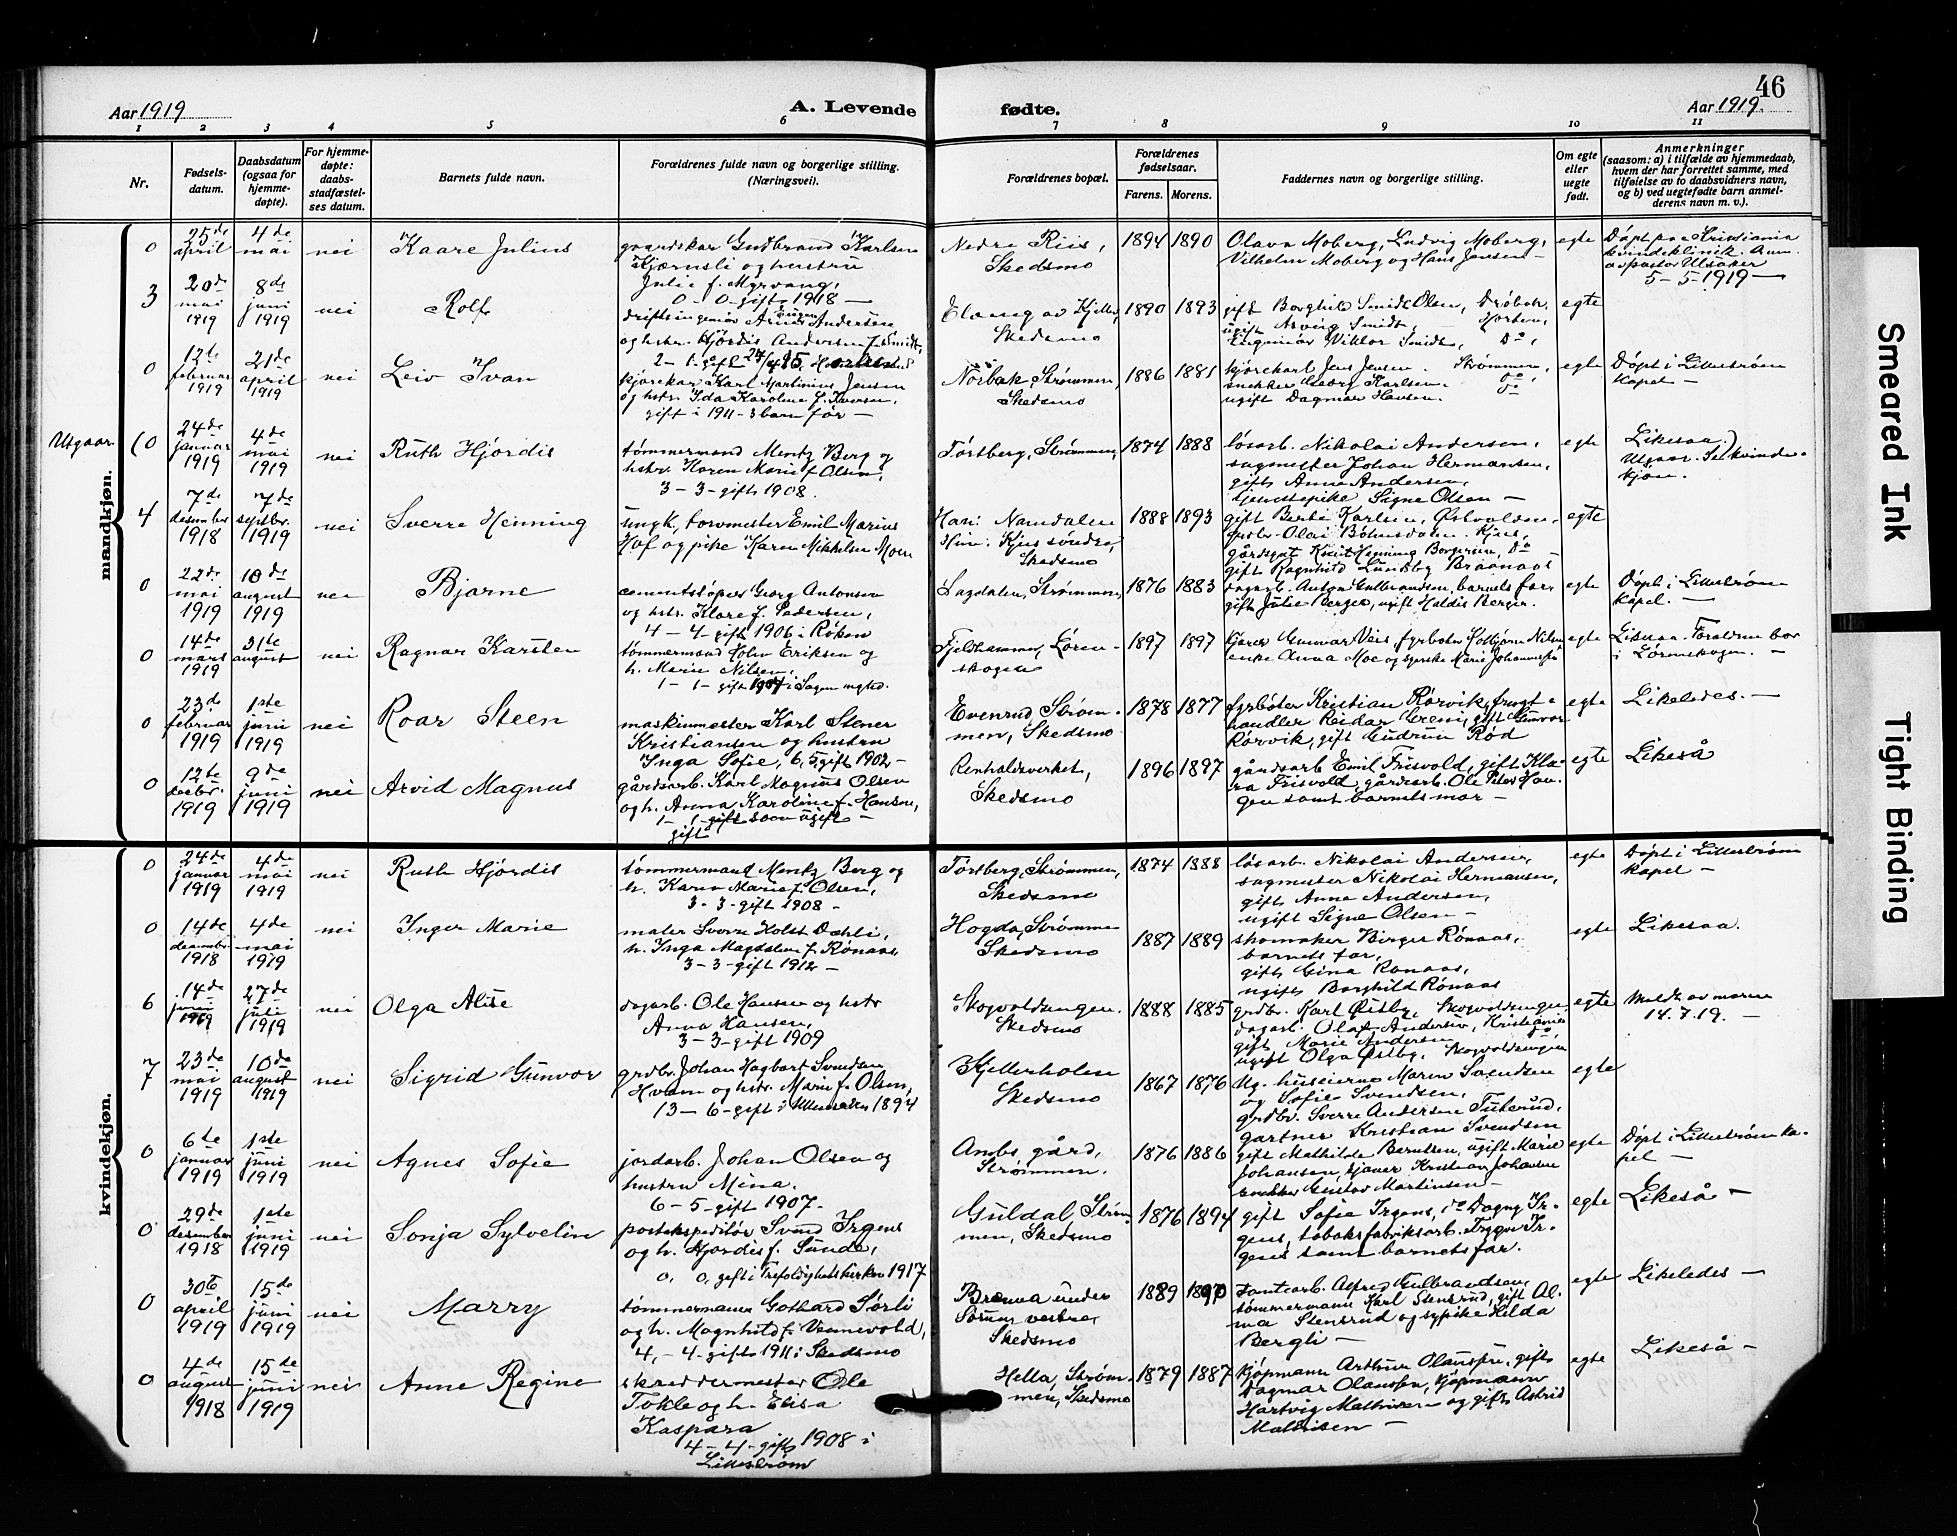 46
Aar 1919
A. Levende
fødte.
Aar 1919.
1 2 3 4 5 6 7 8 9 10 11
Nr.
Fødsels-
datum.
Daabsdatum
(ogsaa for
hjemme-
døpte).
For hjemme-
døpte:
daabs-
stadfæstel-
ses datum.
Barnets fulde navn.
Forældrenes fulde navn og borgerlige stilling.
(Næringsvei).
Forældrenes bopæl.
Forældrenes
fødselsaar.
Farens. Morens.
Faddernes navn og borgerlige stilling.
Om egte
eller
uegte
født.
Anmerkninger
(saasom: a) i tilfælde av hjemmedaab,
hvem der har forrettet samme, med
tilføielse av to daabsvidners navn,
og b) ved uegtefødte barn anmel-
derens navn m. v.).
mandkjøn.
0
25de
april
4de
mai
nei
Kaare Julius
gaardskar Gudbrand Karlsen
Kjærnsli og hustru
Julie f. Myrvang,
0-0-gift 1918 —
Nedre Riis,
Skedsmo
1894 1890
Olava Moberg, Ludvig Moberg,
Vilhelm Moberg og Hans Jensen —
egte
Døpt paa Kristiania
kvindeklinik. Anm.
av pastor Ulsaker
5-5-1919 —
3
20de
mai
1919
8de
juni
1919
nei
Rolf
driftsingeniør Arne Andersen
og hstr. Hjørdis Andersen f. Smidt,
Elveng av Kjeller,
Skedsmo
1890 1893
gift Borghil Smidt Olsen, Drøbak,
ugift Asving Smidt, Horten,
Ingeniør Viktor Smidt, Do,
egte
0
12te
februar
1919
21de
april
1919
nei
Leiv Ivan
kjørekar Karl Martinius Jensen
og hstr. Ida Karoline f. Hansen,
gift i 1911 - 3 barn før —
Nørbak, Strømmen,
Skedsmo
1886 1881
kjørekarl Jens Jensen. Strømmen,
snekker Georg Karlsen. Do,
ugift Dagmar Hansen. Do
egte
Døpt i Lillestrøm
kapel —
Utgaar
(0
24de
januar
1919
4de
mai
1919
nei
Ruth Hjørdis
tømmermand Mentz Berg og
hstr. Karen Marie f. Olsen,
3-3-gift 1908.
Tørtberg, Strømmen,
1874 1888
løsarb. Nikolai Andersen,
sagmester Johan Hermansen,
gift Anna Andersen,
tjenestepike Signe Olsen —
egte
Likesaa.)
Utgaar. Se kvinde-
kjøn.
4
7de
desember
1918
7de
septbr.
1919
nei
Sverre Henning
ungk. torvmester Emil Marius
Hof og pike Karen Mikkelsen Moen
Han: Namdalen
Hun: Kjus søndre,
Skedsmo
1888 1893
gift Berte Karlsen, Østvolden,
grdbr. Olai Bøhnsdalen, Kjus,
gårdsgut Knut Henning Borgersen, Do
gift Ragnhild Lundby Braanaas
egte
0
22de
mai
1919
10de
august
1919
nei
Bjarne
cementstøper Georg Antonsen
og hstr. Klara f. Pedersen,
4-4-gift 1906 i Røken
Sagdalen, Strømmen,
1876 1883
dagarb. Anton Gulbrandsen, barnets far,
gift Julie Berger, ugift Haldis Berger.
egte
Døpt i Lillestrøm
kapel. —
0
14de
mars
1919
31te
august
nei
Ragnar Karsten
tømmermand Sølv Eriksen og
h. Marie Nilsen,
Fjeldhammer, Løren-
skogen
1897 1897
enke Anna Moe og syerske Marie Johannesen
egte
Likesaa. Forældrene bor
i Lørenskogen. —
0
23de
februar
1919
1ste
juni
1919
nei
Roar Steen
maskinmester Karl Stener
Kristiansen og hustru
Inga Sofie, 6, 5, gift 1902 —
Evenrud, Strøm-
men, Skedsmo
1878 1877
fyrbøter Kristian Rørvik, frugt-
handler Reidar Grem, gift Gunvor
Rørvik, gift Gudrun Rød
egte
Likeledes. —
0
12te
febr.
1919
9de
juni
1919
nei
Arvid Magnus
gårdsarb. Karl Magnus Olsen
og h. Anna Karoline f. Hansen,
1-1-gift som ugift —
gift
Renholdsverket,
Skedsmo
1896 1897
gårdsarb. Emil Frisvold, gift Kla-
ra Frisvold, gårdsarb. Ole Peter Hau-
gen samt barnets mor —
egte
Likeså
kvindekjøn.
0
24de
januar
1919
4de
mai
1919
nei
Ruth Hjørdis
tømmermand Mentz Berg og
h. Karen Marie f. Olsen,
3-3-gift 1908 —
Tørtberg, Strømmen,
Skedsmo
1874 1888
løsarb. Nikolai Andersen,
sagmester Nikolai Hermansen,
gift Anne Andersen,
ugift Signe Olsen —
egte
Døpt i Lillestrøm
kapel —
0
14de
desember
1918
4de
mai
1919
nei
Inger Marie
maler Sverre Holst Dæhli,
h. Inga Magdalene f. Rønaas,
3-3-gift 1912 —
Hogda, Strømmen
Skedsmo
1887 1889
skomaker Birger Rønaas,
barnets far,
gift Gina Rønaas,
ugift Borghild Rønaas
egte
Likesaa.
6
14de
juni
1919
27de
juli
1919
nei
Olga Alise
dagarb. Ole Hansen og hstr
Anna Hansen,
3-3-gift 1909
Skogvoldsengen.
Skedsmo
1888 1885
grdbr. Karl Østby, Skogvoldsengen
dagarb. Olaf Andersen, Kristiania
gift Marie Andersen Do
ugift Olga Østby, Skogvoldsengen
egte
Meldt av moren
14.7.19. —
7
23de
mai
1919
10de
august
1919
nei
Sigrid Gunvor
grdbr. Johan Hagbart Svendsen
Hvam og hstr. Marie f. Olsen,
13-6-gift i Ullensaker 1894
Kjellerholen
Skedsmo
1867 1876
Ug. huseierne Maren Svendsen
og Sofie Svendsen,
grdbr. Sverre Andersen Tuterud,
gartner Kristian Svendsen
egte
0
6te
januar
1919
1ste
juni
1919
nei
Agnes Sofie
jordarb. Johan Olsen og
hustru Mina.
6-5-gift 1907-
Ambs gård,
Strømmen.
1876 1886
gift Mathilde Berntsen, ugift Marie
Johansen, kjører Kristian Johansen
snekker Gustav Martinsen —
egte
Døpt i Lillestrøm ka-
pel —
0
29de
desember
1918
1ste
juni
1919
nei
Sonja Sylvelin
postekspeditør Svend Irgens
og h. Hjørdis f. Sunde,
0, 0, gift i Trefoldighetskirken 1917
Guldal, Strøm-
men, Skedsmo
1876 1894
gift Sofie Irgens, do Dagny Ir-
gens, tobaksfabriksarb. Trygve Ir-
gens samt barnets far.
egte
Likeså —
0
30te
april
1919
15de
juni
1919
nei
Marry
tømmermann Gothard Sørli
og h. Magnhild f. Vennevold,
4, -4-gift 1911 i Skedsmo
Brenna under
Sørum vestre,
Skedsmo
1889 1890
Tomtearb. Alfred Gulbrandsen,
tømmermann Karl Stensrud, gift Al-
ma Stensrud og sypike Hilda
Bergli —
egte
Likeledes —
0
4de
august
1918
15de
juni
1919
nei
Anne Regine
skreddermester Ole
Tokle og h. Elisa
Kaspara
4-4-gift 1908 i
Lillestrøm
Hella, Strøm-
men, Skedsmo
1879 1887
Kjøpmann Arthur Olaussen, gift
Dagmar Olaussen, kjøpmann
Hartvig Mathisen og gift Astrid
Mathisen —
egte
Likeså —
Smeared Ink
Tight Binding